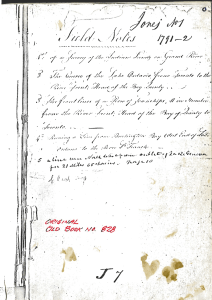 Jones No 1
Field Notes 1791-2
1st of a Survey of the Indian Lands on Grand River
2 The Course of the Lake Ontario from Toronto to the
River Trent, Head of the Bay Quinty
3 The front lines of a Row of Townships, in Number
from the River Trent, Head of the Bay of Quinty to
Toronto
4 Running a Line from Burlington Bay West End of Lake
Ontario to the River La Trench
5 a line run North
ORIGINAL
OLD BOOK NO. 828
J 7